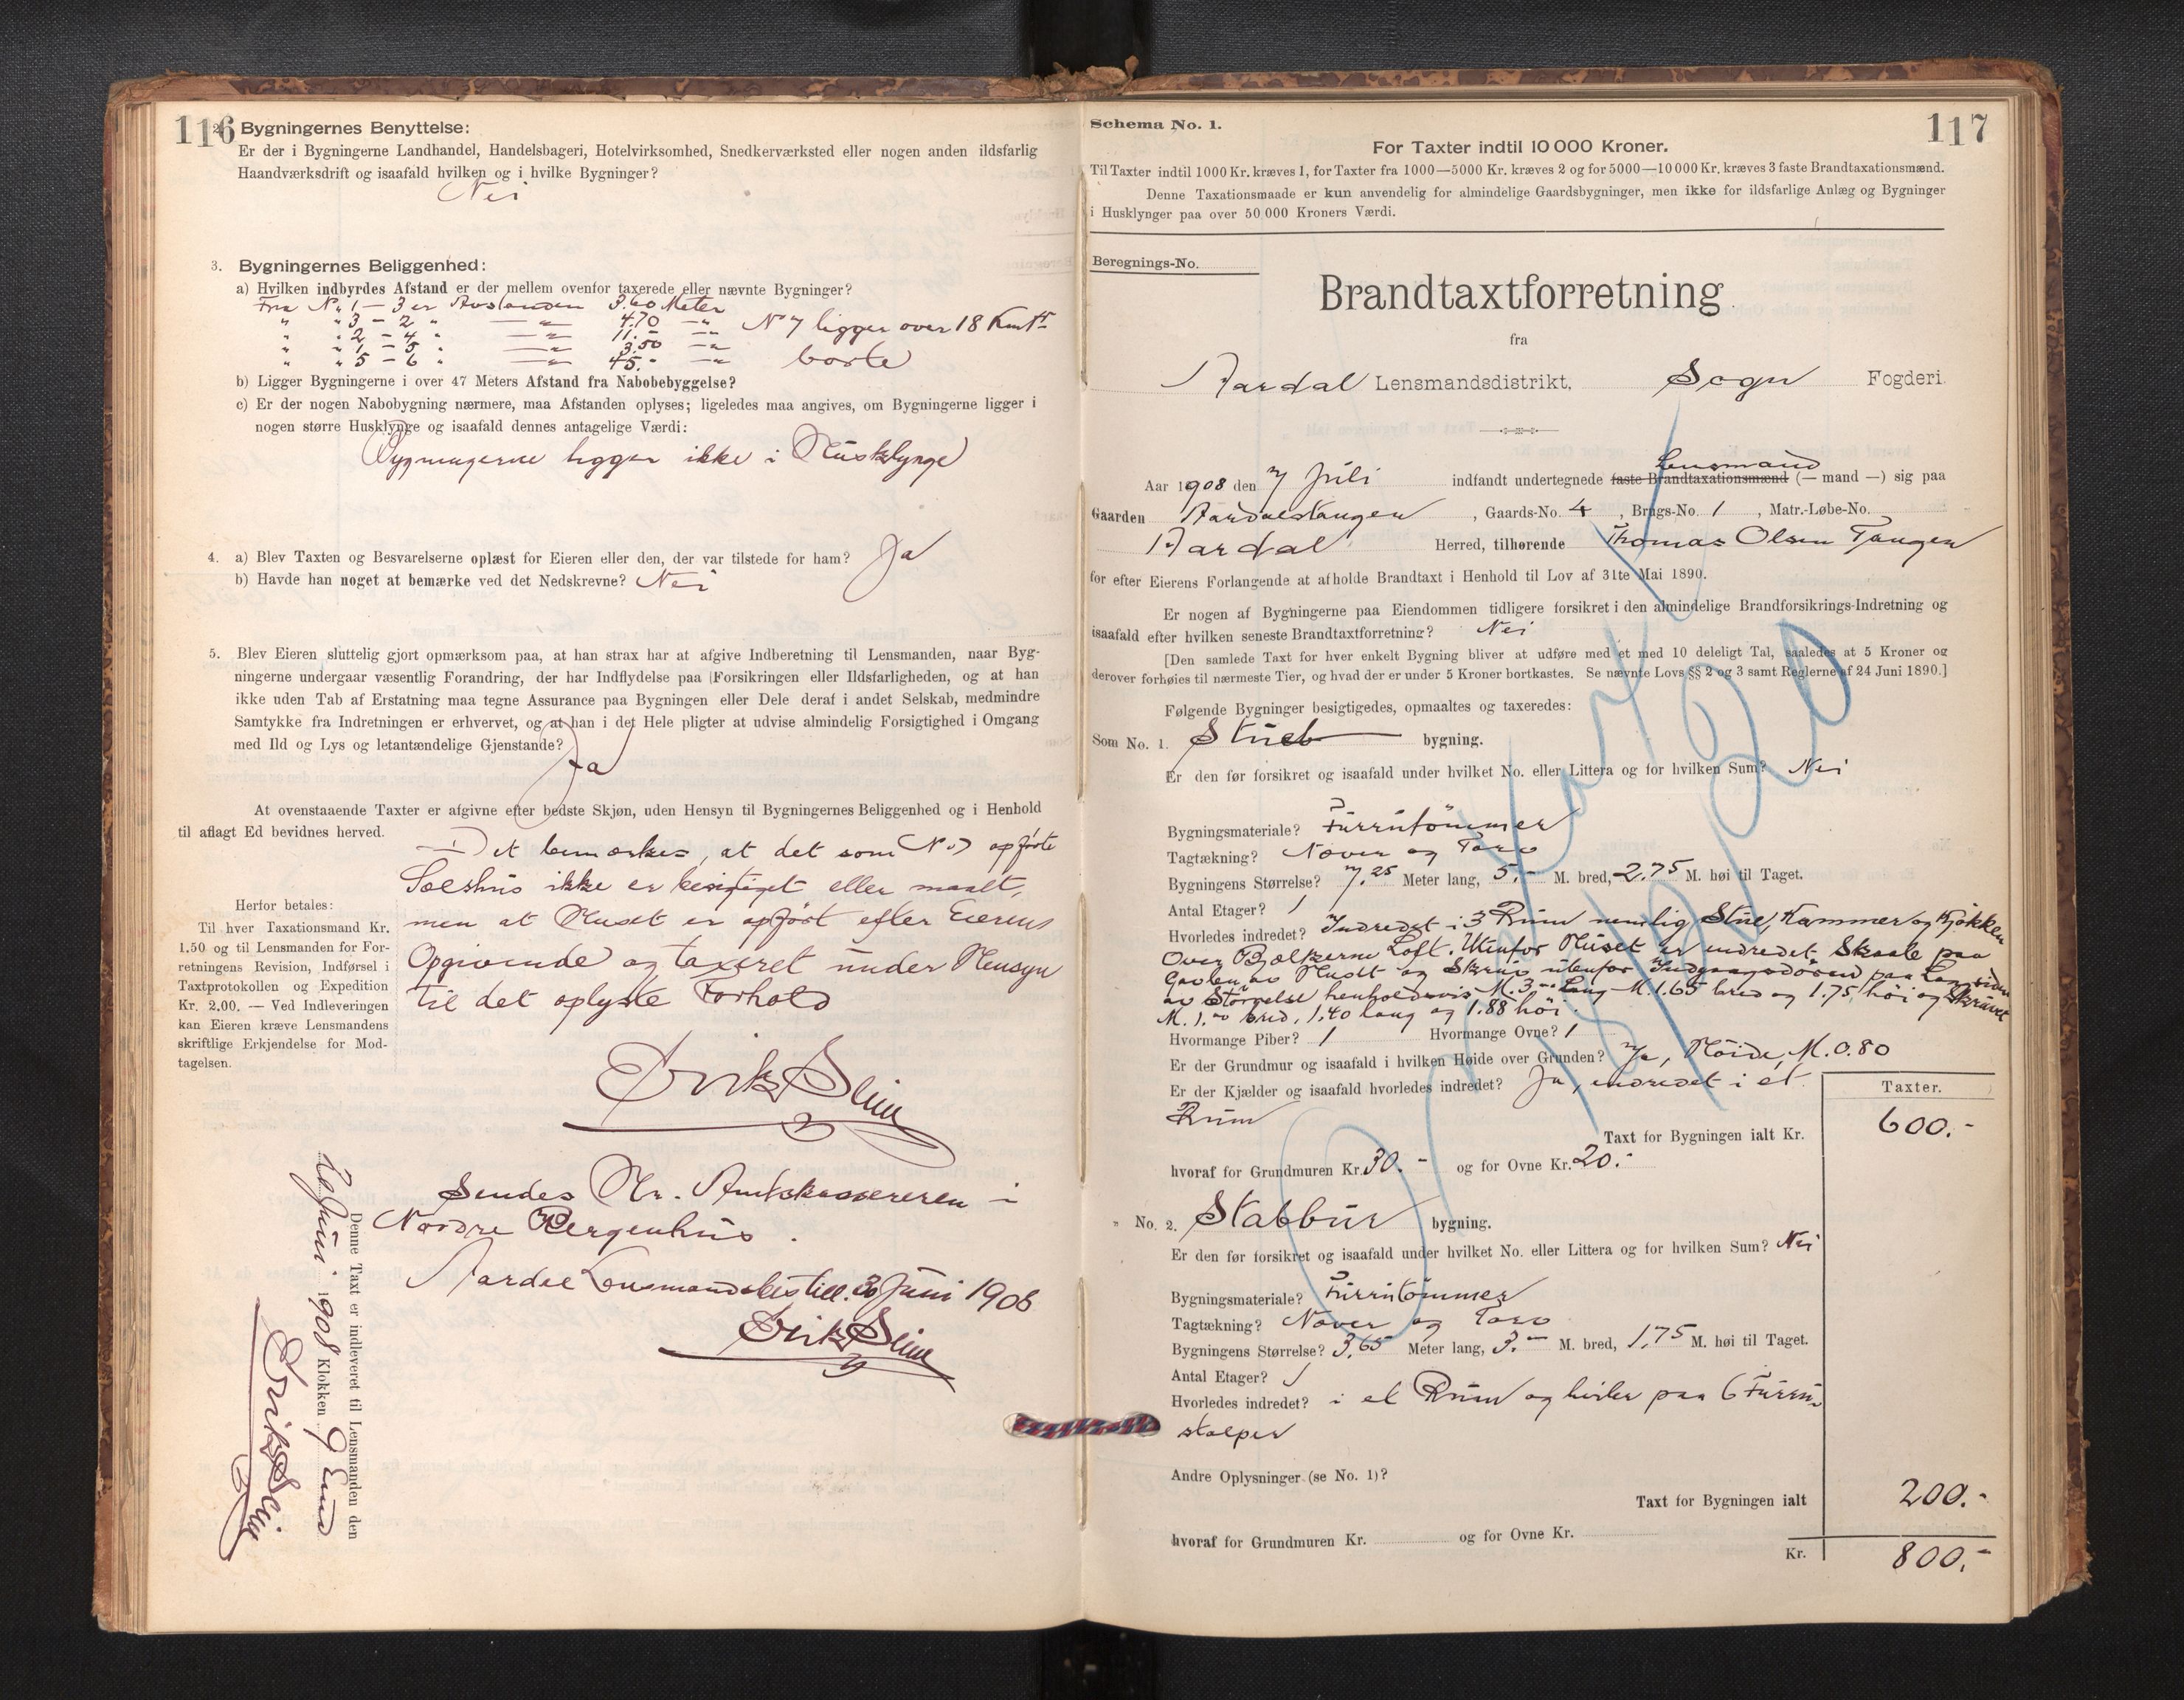 116
2. Bygningernes Benyttelse:
Er der i Bygningerne Landhandel, Handelsbageri, Hotelvirksomhed, Snedkerværksted eller nogen anden ildsfarlig
Haandværksdrift og isaafald hvilken og i hvilke Bygninger?
Nei
3. Bygningernes Beliggenhed:
a) Hvilken indbyrdes Afstand er der mellem ovenfor taxerede eller nævnte Bygninger?
Fra No 1 – 3 er Avstanden 3.60 Meter
" " 3 – 2 " — " — 4.70 — " No 7 ligger over 18 Kmtr
" " 2 – 4 " — " — 11.– — "
" " 1 – 5 " — " — 3.50 — " borte
" " 5 – 6 " — " — 45.– — "
b) Ligger Bygningerne i over 47 Meters Afstand fra Nabobebyggelse?
c) Er der nogen Nabobygning nærmere, maa Afstanden oplyses; ligeledes maa angives, om Bygningerne ligger i
nogen større Husklynge og isaafald dennes antagelige Værdi:
Bygningerne ligger ikke i Husklynge
4. a) Blev Taxten og Besvarelserne oplæst for Eieren eller den, der var tilstede for ham? Ja
b) Havde han noget at bemærke ved det Nedskrevne? Nei
5. Blev Eieren sluttelig gjort opmærksom paa, at han strax har at afgive Indberetning til Lensmanden, naar Byg-
ningerne undergaar væsentlig Forandring, der har Indflydelse paa Forsikringen eller Ildsfarligheden, og at han
ikke uden Tab af Erstatning maa tegne Assurance paa Bygningen eller Dele deraf i andet Selskab, medmindre
Samtykke fra Indretningen er erhvervet, og at han i det Hele pligter at udvise almindelig Forsigtighed i Omgang
med Ild og Lys og letantændelige Gjenstande?
Ja
At ovenstaaende Taxter er afgivne efter bedste Skjøn, uden Hensyn til Bygningernes Beliggenhed og i Henhold
til aflagt Ed bevidnes herved.
Det bemærkes, at det som No 7 opførte
Sælshus ikke er besigtiget eller maalt,
men at Huset er opført efter Eierens
Opgivende og taxeret under Hensyn
til det oplyste Forhold
Herfor betales:
Til hver Taxationsmand Kr.
1.50 og til Lensmanden for For-
retningens Revision, Indførsel i
Taxtprotokollen og Expedition
Kr. 2.00. — Ved Indleveringen
kan Eieren kræve Lensmandens
skriftlige Erkjendelse for Mod-
tagelsen.
Erik Slinde
Sendes Hr. Amtskassereren i
Nordre Bergenhus.
Aardal Lensmandsbestill. 30 Juni 1908
Denne Taxt er indleveret til Lensmanden den
1908 Klokken 9 Em
117
Schema No. 1.
For Taxter indtil 10 000 Kroner.
Til Taxter indtil 1000 Kr. kræves 1, for Taxter fra 1000—5000 Kr. kræves 2 og for 5000—10 000 Kr. kræves 3 faste Brandtaxationsmænd.
Denne Taxationsmaade er kun anvendelig for almindelige Gaardsbygninger, men ikke for ildsfarlige Anlæg og Bygninger
i Husklynger paa over 50 000 Kroners Værdi.
Beregnings-No.
Brandtaxtforretning
fra
Aardal Lensmandsdistrikt, Sogn Fogderi.
Lensmand
Aar 1908 den 7 Juli indfandt undertegnede faste Brandtaxationsmænd (— mand —) sig paa
Gaarden Aardalstangen, Gaards-No. 4, Brugs-No. 1, Matr.-Løbe-No.
Aardal Herred, tilhørende Thomas Olsen Tangen
for efter Eierens Forlangende at afholde Brandtaxt i Henhold til Lov af 31te Mai 1890.
Er nogen af Bygningerne paa Eiendommen tidligere forsikret i den almindelige Brandforsikrings-Indretning og
isaafald efter hvilken seneste Brandtaxtforretning? Nei
[Den samlede Taxt for hver enkelt Bygning bliver at udføre med et med 10 deleligt Tal, saaledes at 5 Kroner og
derover forhøies til nærmeste Tier, og hvad der er under 5 Kroner bortkastes. Se nævnte Lovs §§ 2 og 3 samt Reglerne af 24 Juni 1890.]
Følgende Bygninger besigtigedes, opmaaltes og taxeredes:
Som No. 1. Stue bygning.
Er den før forsikret og isaafald under hvilket No. eller Littera og for hvilken Sum? Nei
Bygningsmateriale? Furrutømmer
Tagtækning? Næver og Torv
Bygningens Størrelse? 7.25 Meter lang, 5.– M. bred, 2.75 M. høi til Taget.
Antal Etager? 1
Hvorledes indredet? Indredet i 3 Rum nemlig Stue, Kammer og Kjøkken
Over Bjælkerne Loft. Utenfor Huset er indredet Skaale paa
Gavlen av Huset og Skruv utenfor Indgangsdøren paa Langsiden
av Størrelse henholdsvis M. 3.– lang M. 1.65 bred og 1.75 høi og Skruvet
M. 1.– bred, 1.40 lang og 1.88 høi.
Hvormange Piber? 1 Hvormange Ovne? 1
Er der Grundmur og isaafald i hvilken Høide over Grunden? Ja, Høide, M. 0.80
Er der Kjælder og isaafald hvorledes indredet? Ja, indredet i et
Rum
Taxter.
Taxt for Bygningen ialt Kr. 600.-
hvoraf for Grundmuren Kr. 30.- og for Ovne Kr. 20.-
" No. 2. Stabbur bygning.
Er den før forsikret og isaafald under hvilket No. eller Littera og for hvilken Sum? Nei
Bygningsmateriale? Furrutømmer
Tagtækning? Næver og Torv
Bygningens Størrelse? 3.65 Meter lang, 3.– M. bred, 1.75 M. høi til Taget.
Antal Etager? 1
Hvorledes indredet? i et Rum og hviler paa 6 Furru
stolper
Andre Oplysninger (se No. 1)?
Taxt for Bygningen ialt 200.-
hvoraf for Grundmuren Kr. og for Ovne Kr.
Kr. 800.-